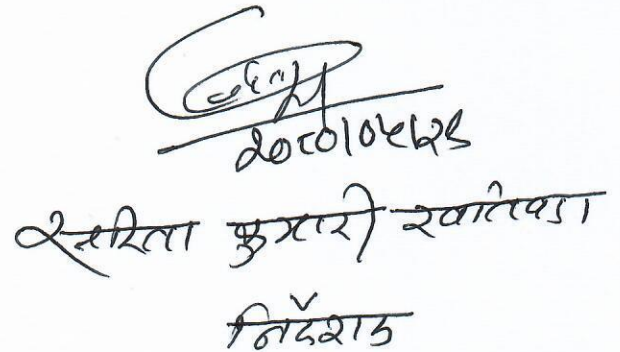 २०८०।०५।२९
सरिता कुमारी खतिवडा
निर्देशक